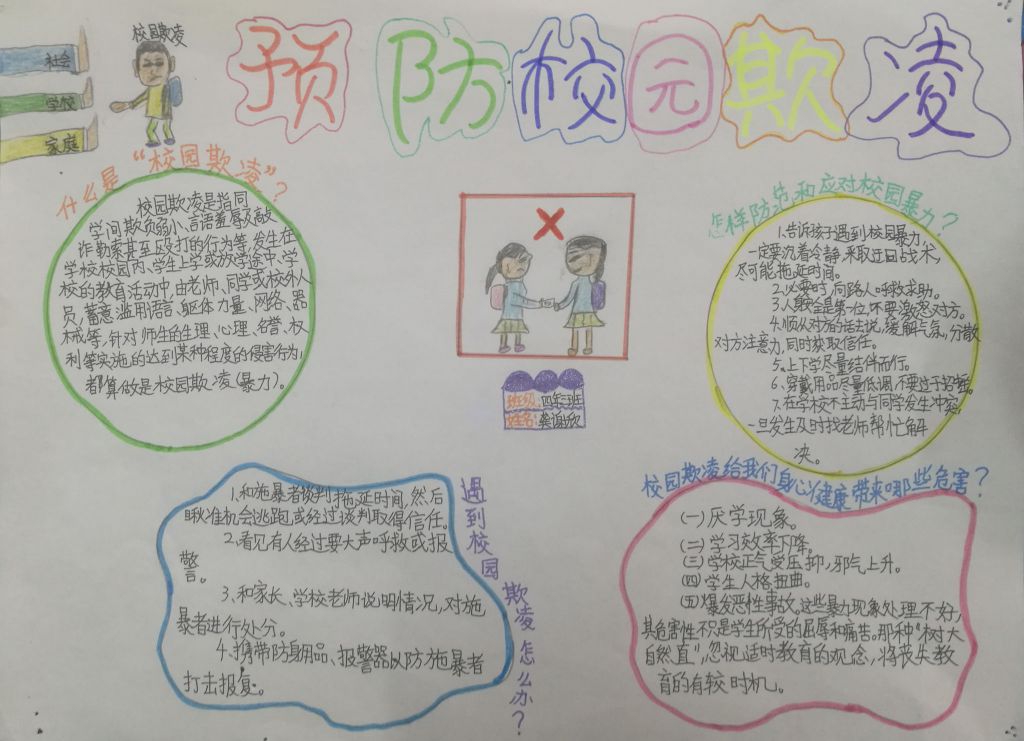 预防校园欺凌
校园欺凌
社会
学校
家庭
什么是“校园欺凌”?
校园欺凌是指同
学间欺负弱小、言语羞辱及敲
诈勒索甚至殴打的行为等,发生在
学校校园内、学生上学或放学途中、学
校的教育活动中,由老师、同学或校外人
员,蓄意滥用语言、躯体力量、网络、器
械等,针对师生的生理、心理、名誉、权
利等实施的达到某种程度的侵害行为,
都算做是校园欺凌(暴力)。
班级:四年班
姓名:龚谢欣
怎样防范和应对校园暴力?
1.告诉孩子遇到校园暴力,
一定要沉着冷静,采取迂回战术,
尽可能拖延时间。
2.必要时,向路人呼救求助。
3.人身安全是第一位,不要激怒对方。
4.顺从对方的话去说,缓解气氛,分散
对方注意力,同时获取信任。
5.上下学尽量结伴而行。
6.穿戴用品尽量低调,不要过于招摇。
7.在学校不主动与同学发生冲突,
一旦发生及时找老师帮忙解
决。
遇到校园欺凌怎么办?
1.和施暴者谈判,拖延时间,然后
瞅准机会逃跑,或经过谈判取得信任。
2.看见有人经过要大声呼救或报
警。
3、和家长、学校老师说明情况,对施
暴者进行处分。
4、携带防身用品、报警器以防施暴者
打击报复。
校园欺凌给我们身心健康带来哪些危害?
(一)厌学现象。
(二)学习效率下降。
(三)学校正气受压抑,邪气上升。
(四)学生人格扭曲。
(五)爆发恶性事故,这些暴力现象处理不好,
其危害性不只是学生所受的屈辱和痛苦。那种“树大
自然直”,忽视适时教育的观念,将丧失教
育的有较时机。